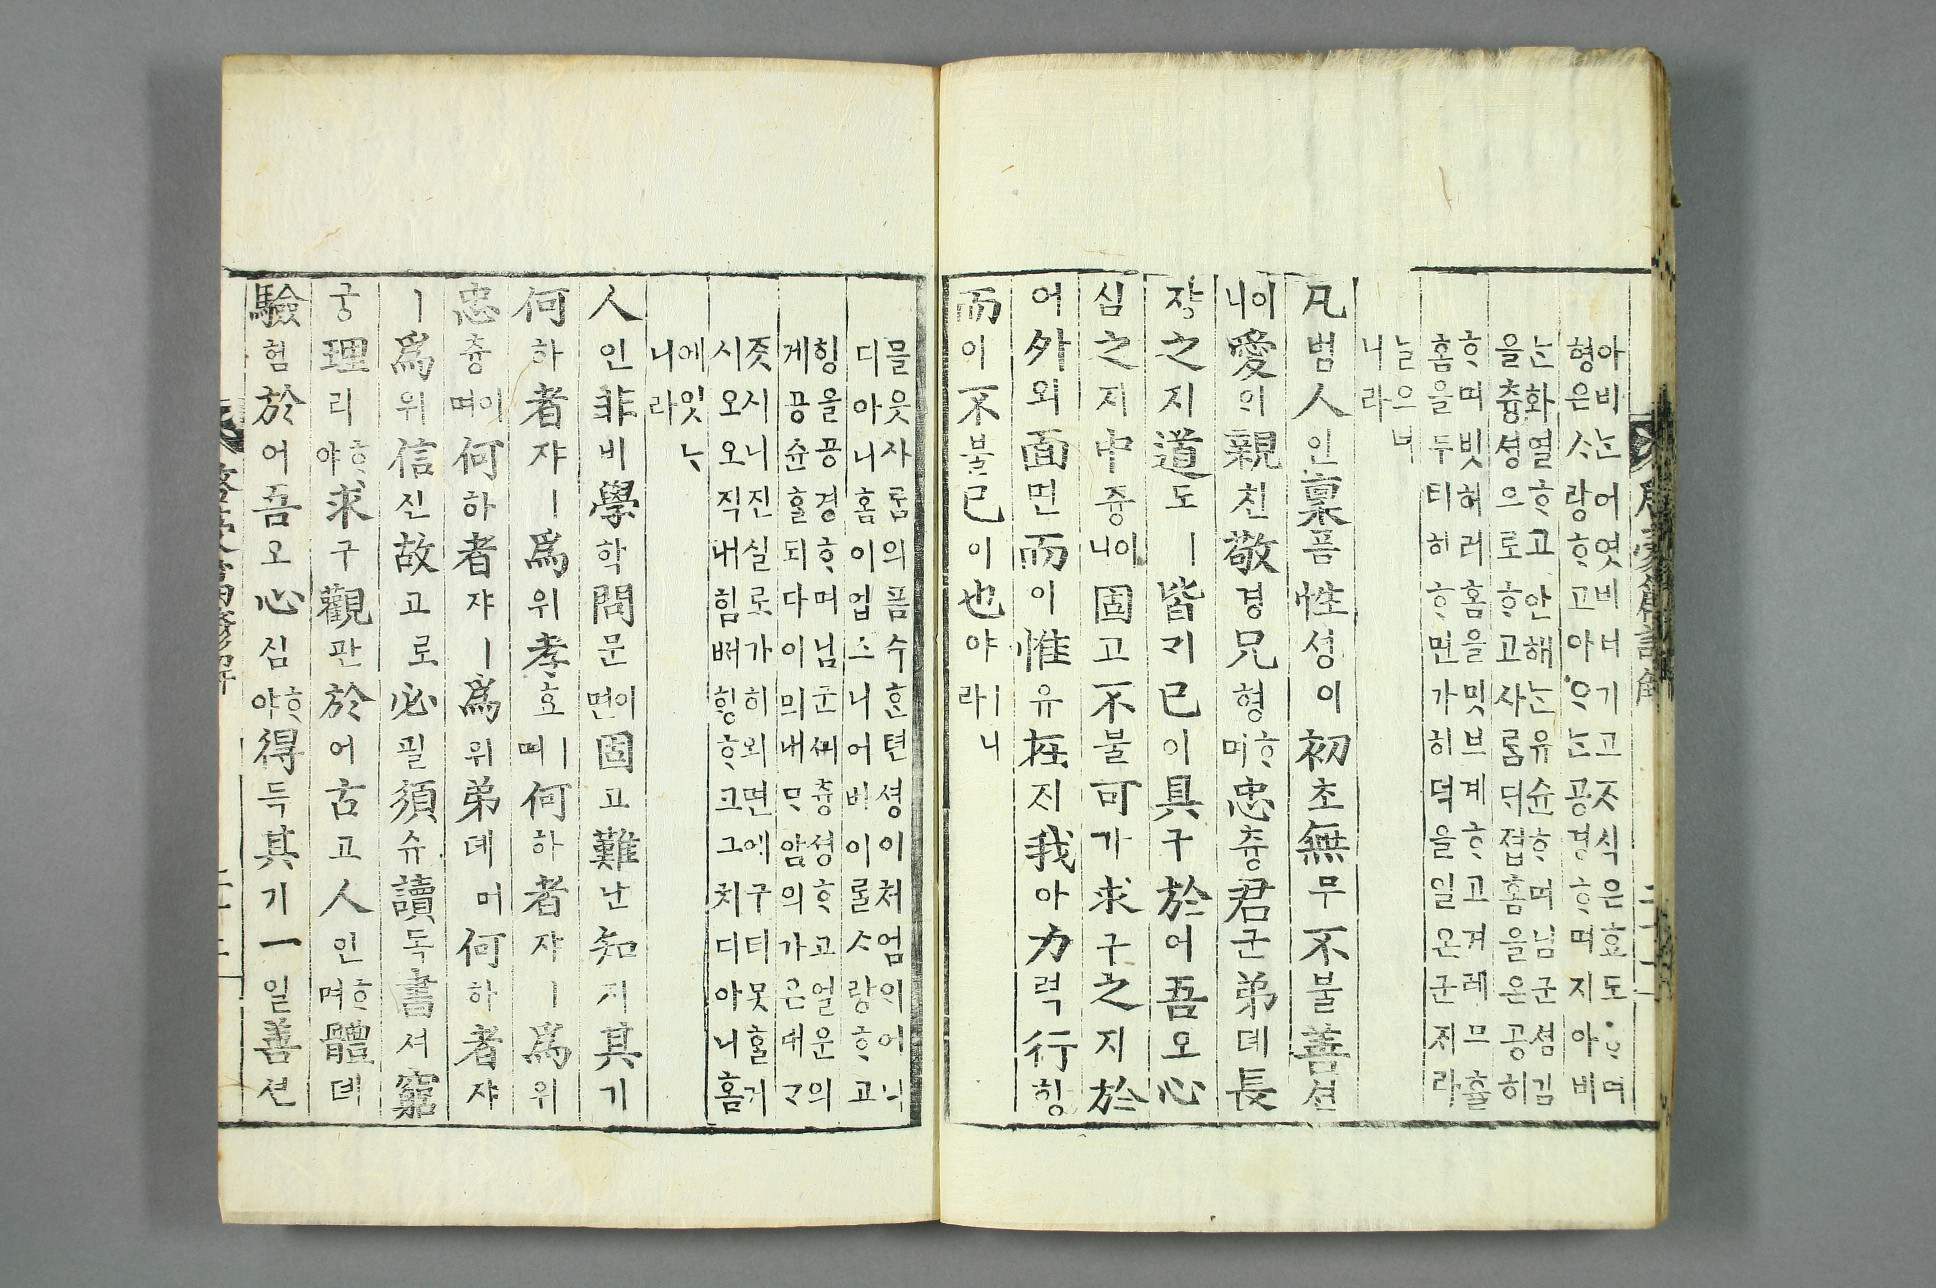 아비ᄂᆞᆫ어엿비너기고ᄌᆞ식은효도ᄒᆞ며
형은ᄉᆞ랑ᄒᆞ고아ᄋᆞᄂᆞᆫ공경ᄒᆞ며지아비
ᄂᆞᆫ화열ᄒᆞ고안해ᄂᆞᆫ유슌ᄒᆞ며님군셤김
을츙셩으로ᄒᆞ고사ᄅᆞᆷᄃᆡ졉홈을온공히
ᄒᆞ며빗허러홈을밋브계ᄒᆞ고겨레므흘
홈을두터히ᄒᆞ면가히덕을일온군지라
닐으
니라
凡범人인稟품性셩이初초無무不불善션
이니愛ᄋᆡ親친敬경兄형ᄒᆞ며忠츙君군弟뎨長
쟝之지道도ㅣ皆ᄀᆡ已이具구於어吾오心
심之지中즁이니固고不불可가求구之지於
어外외面면而이惟유在ᄌᆡ我아力력行ᄒᆡᆼ
而이不불已이也야ㅣ니라
믈읏사ᄅᆞᆷ의품수ᄒᆞᆫ텬셩이처엄의어니
디아니홈이업스니어비이ᄅᆞᆯᄉᆞ랑ᄒᆞ고
형을공경ᄒᆞ며님군ᄭᅴ츙셩ᄒᆞ고얼운의
게공슌홀되다이믜내ᄆᆞ암의가온대ᄀ
ᄌᆞᆺ시니진실로가히외면에구티못홀거
시오오직내힘ᄡᅥᄒᆡᆼᄒᆞ고그치디아니홈
에잇ᄂᆞ
니라
人인非비學학問문이면固고難난知지其기
何하者쟈ㅣ爲위孝효ㅣ며何하者쟈ㅣ爲위
忠츙이며何하者쟈ㅣ爲위弟뎨며何하者쟈
ㅣ爲위信신故고로必필須슈讀독書셔窮
궁理리ᄒᆞ야求구觀관於어古고人인ᄒᆞ며體톄
驗험於어吾오心심ᄒᆞ야得득其기一일善션